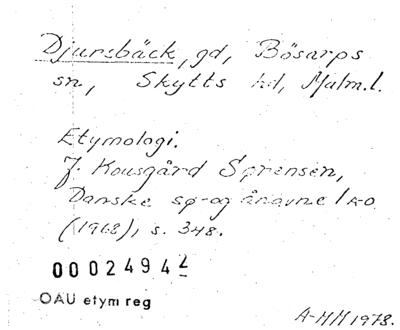 Djursbäck, gd, Bösarps
sn, Skytts hd, Malm.l.
Etymologi.
J. Kousgård Sørensen,
Danske sø- og ånavne 1 K-O
(1968), s. 348.
00024942
OAU etym reg
A-MH 1978.